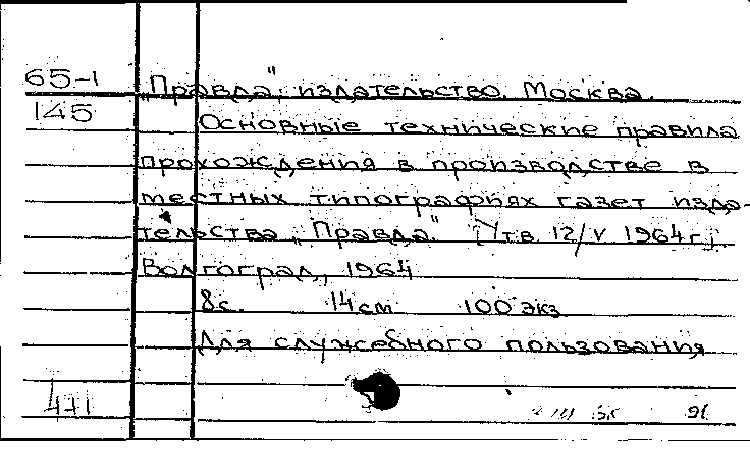 65-1 „Правда", издательство. Москва.
145 Основные технические правила
прохождения в производстве в
местных типографиях газет изда-
тельства „Правда." [Утв. 12/V 1964 г.]
Волгоград, 1964
8с. 14 см 100 экз.
Для служебного пользования
471 91